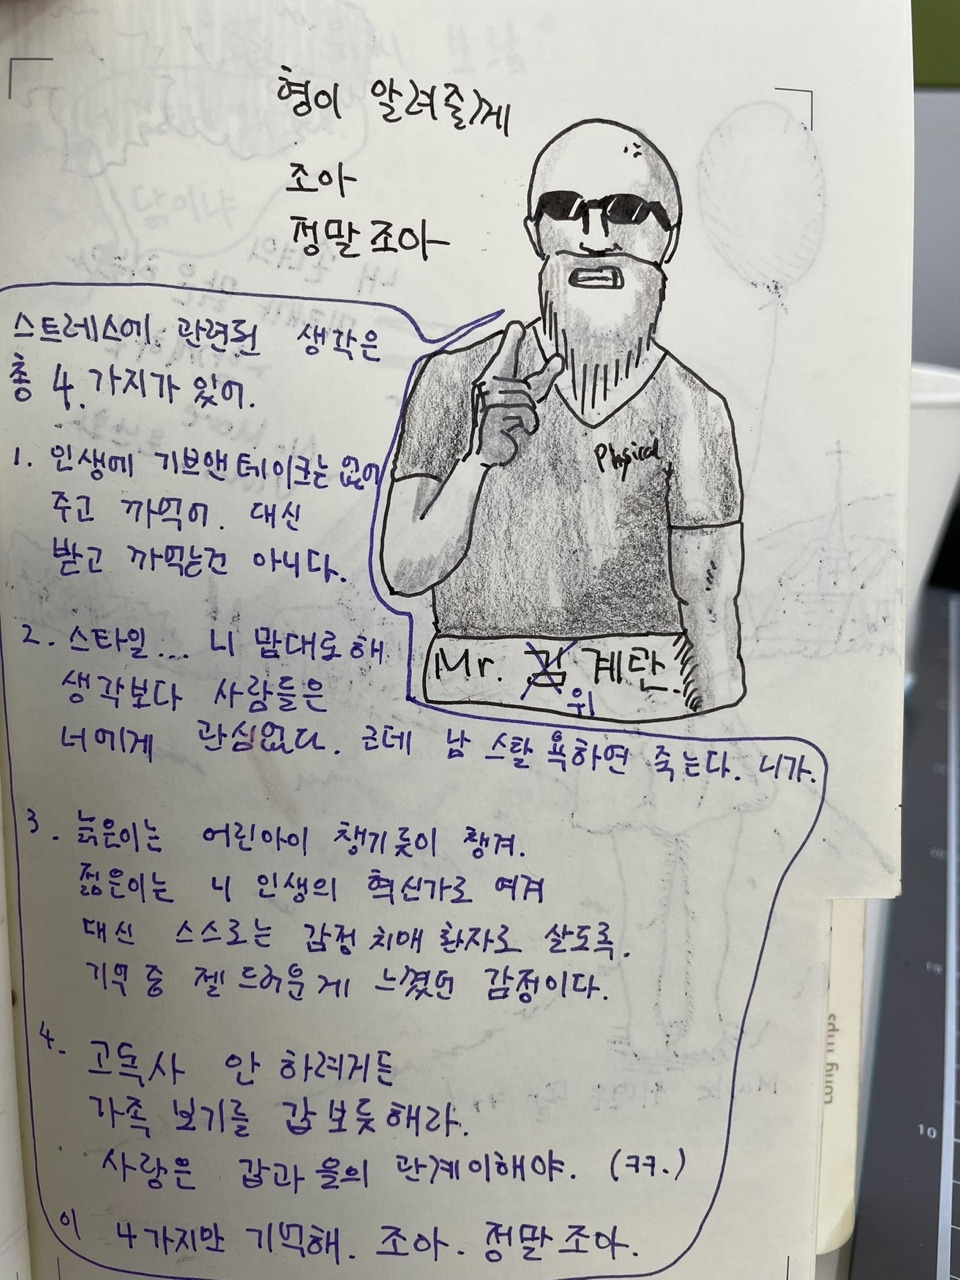 형이 알려줄게
조아
정말조아
스트레스에 관련된 생각은
총 4가지가 있어.
1. 인생에 기브앤테이크는 없어
주고 까먹어. 대신
받고 까먹는건 아니다.
2. 스타일... 니 맘대로해
생각보다 사람들은
너에게 관심없다. 근데 남 스탈 욕하면 죽는다. 니가.
3. 늙은이는 어린아이 챙기듯이 챙겨.
젊은이는 니 인생의 혁신가로 여겨
대신 스스로는 감정 치매 환자로 살도록.
기억 중 젤 드러운게 느꼈던 감정이다.
4. 고독사 안 하려거든
가족 보기를 갑 보듯해라.
사랑은 갑과 을의 관계이해야. (ㅋㅋ.)
이 4가지만 기억해. 조아. 정말조아.
Physical
Mr. 김 계란.
위
Long Trips
10